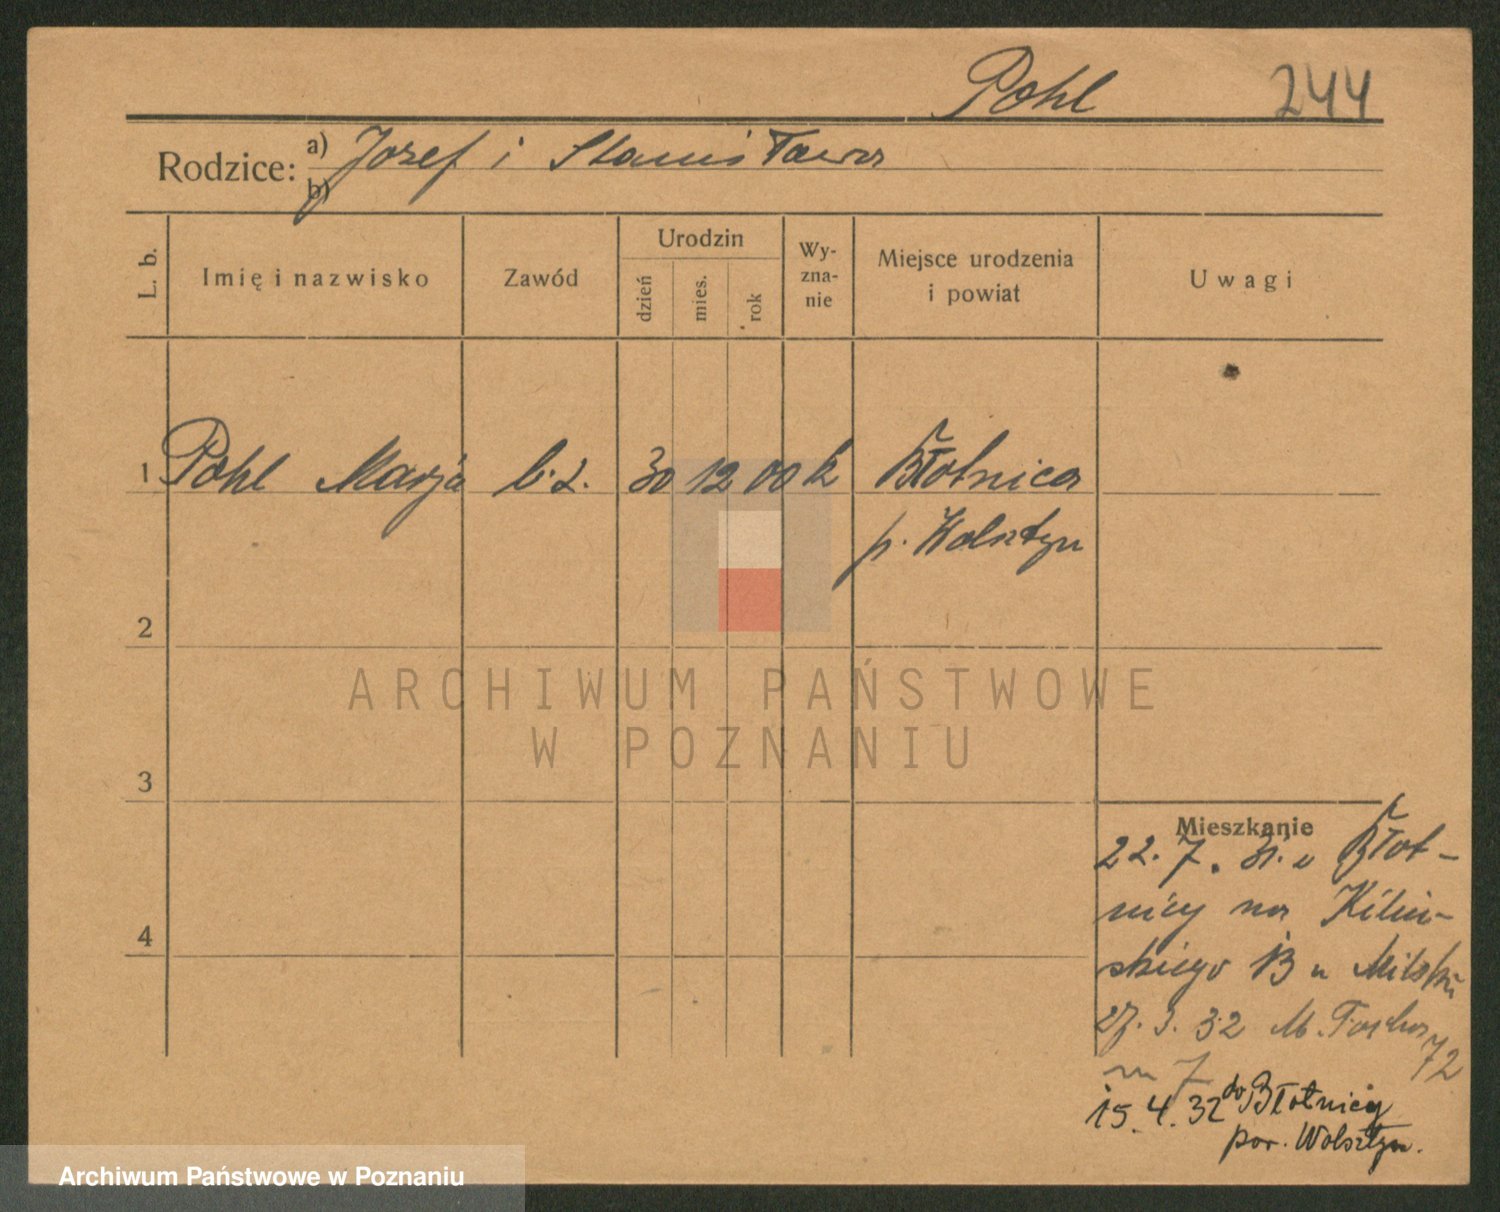 Pohl 244
Rodzice: a) Jozef i Stanisława
b)
L. b. Imię i nazwisko Zawód Urodzin dzień mies. rok Wy-zna-nie Miejsce urodzenia i powiat Uwagi
1 Pohl Marja b. z. 30 12 00 k Błotnica
p. Wolsztyn
2
3
4
Mieszkanie
22. 7. 31. z Błot-
nicy na Kiliń-
skiego 13 u
27. 3. 32 M. Focha 72
m 7
15. 4. 32 do Błotnicy
pow. Wolsztyn.
ARCHIWUM PAŃSTWOWE
W POZNANIU
Archiwum Państwowe w Poznaniu